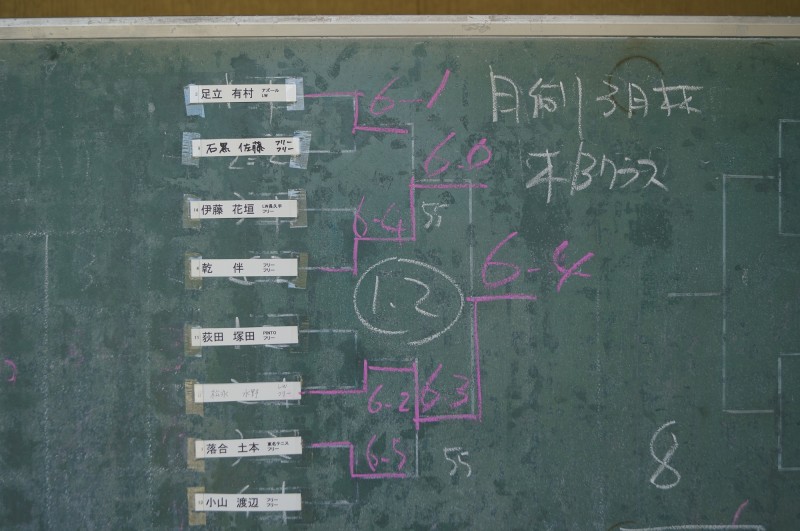 足立 有村 アズール LW
6-1
月例 3月杯
石黒 佐藤 フリー フリー
6-0
木Bクラス
伊藤 花垣 LW長久手 フリー
6-4
55
乾 伴 フリー フリー
6-4
1.2
荻田 塚田 PINTO フリー
水野 LW フリー
6-2
6-3
落合 土本 フリー
6-5
55
8
小山 渡辺 フリー フリー